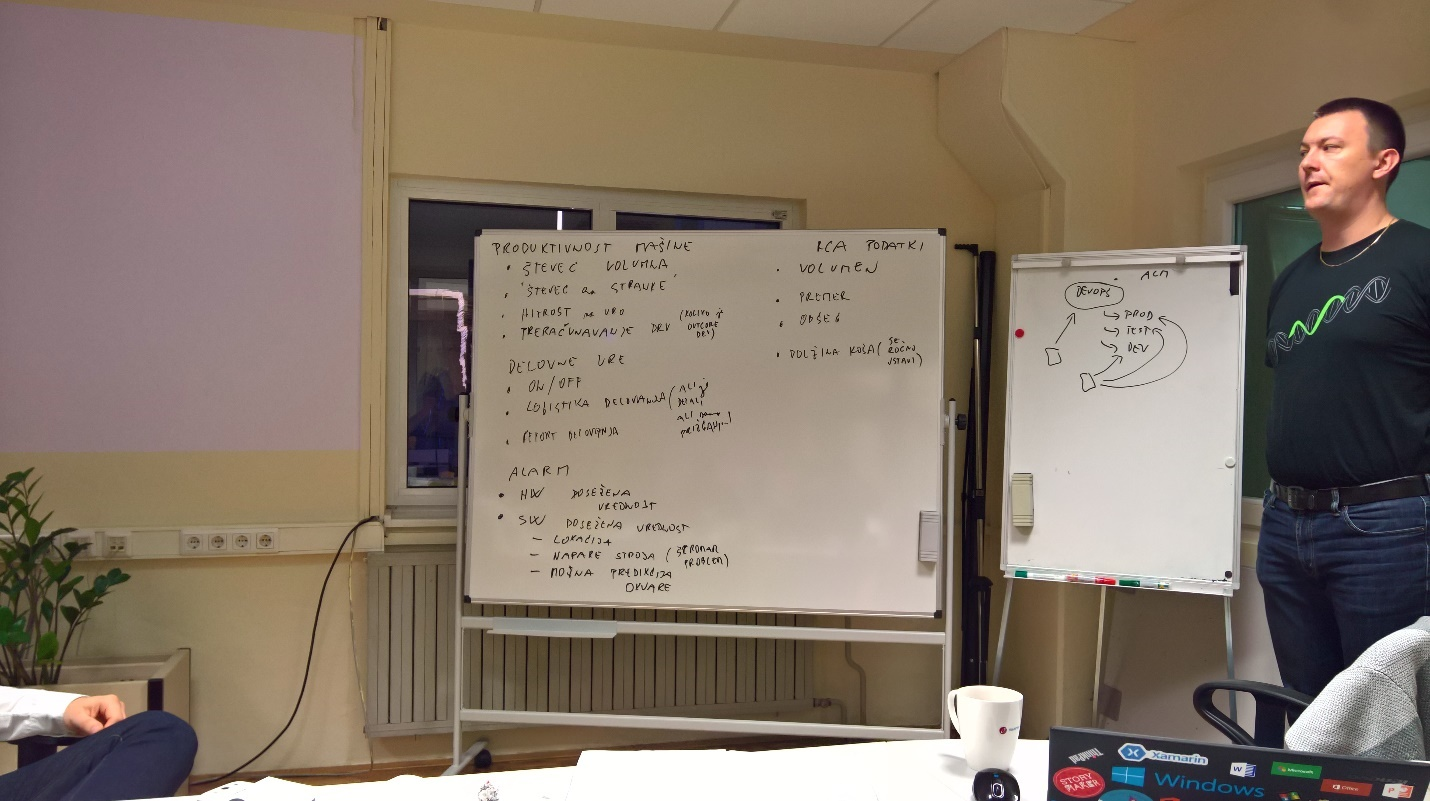 PRODUKTIVNOST MAŠINE
• ŠTEVEC VOLUMNA
• ŠTEVEC STRANKE
• HITROST NA URO
• PRERAČUNAVANJE DRV (KOLIKO JE
DRV)
DELOVNE URE
• ON/OFF
• LOGISTIKA DELOVANJA (ALI JE
DELALI
ALI
• REPORT DELOVANJA
ALARM
• HW DOSEŽENA
VREDNOST
• SW DOSEŽENA VREDNOST
– LOKACIJA
– NAPAKE STROJA (
PROBLEM)
– MOŽNA PREDIKCIJA
OKVARE
PODATKI
• VOLUMEN
• PREMER
• OBSEG
• DOLŽINA KOSA (SE
ROČNO
VSTAVI)
ALM
DEVOPS
PROD
TEST
DEV
ThinkPad
Xamarin
STORY
MAKER
Windows
Microsoft
Office